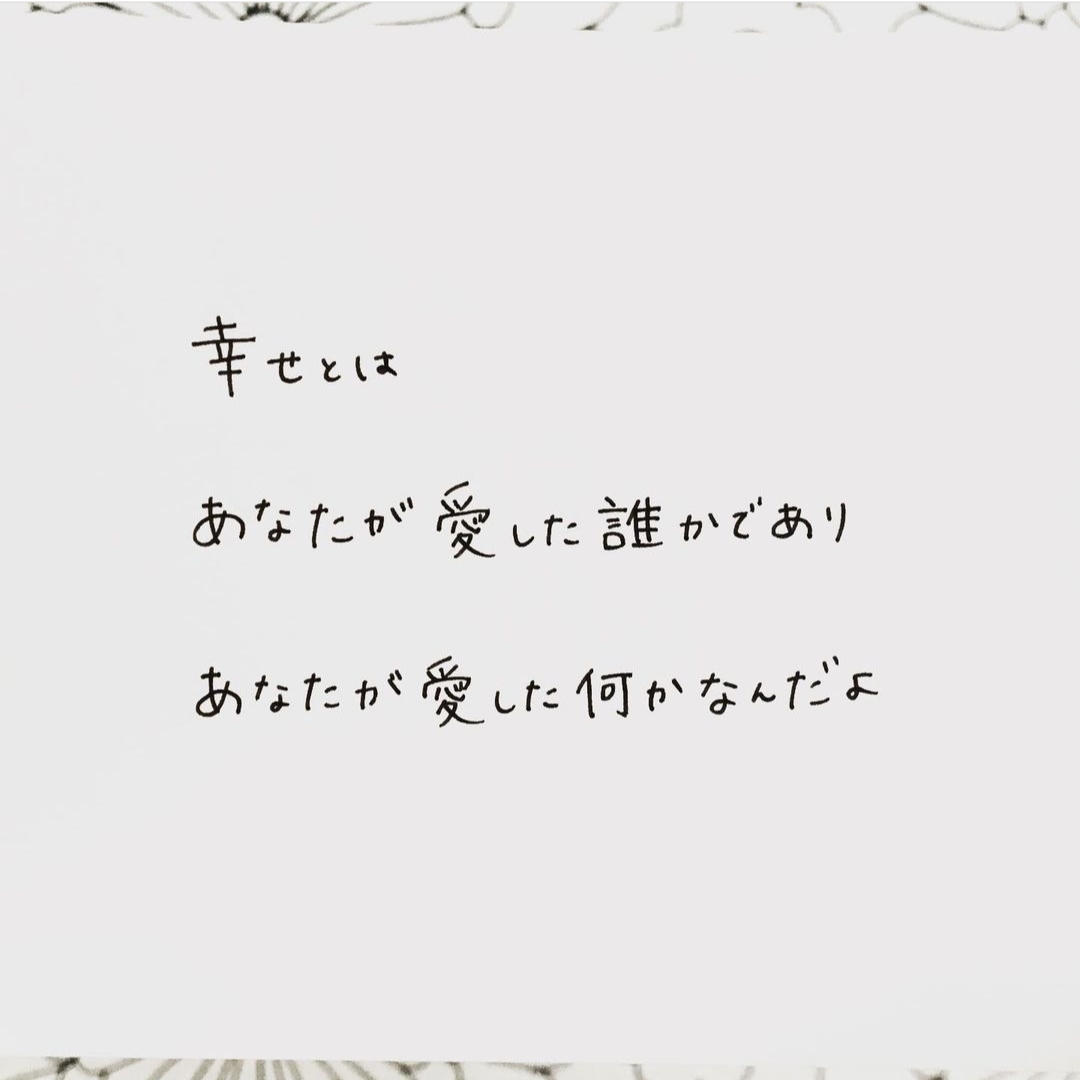 幸せとは
あなたが愛した誰かであり
あなたが愛した何かなんだよ